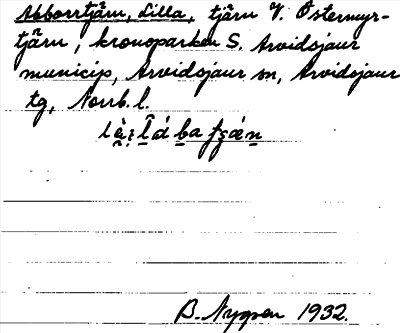 Abborrtjärn, Lilla, tjärn V. Östermyr-
tjärn, kronoparken S. Arvidsjaur
municip, Arvidsjaur sn, Arvidsjaur
tg, Norrb. l.
B. Nygren 1932.